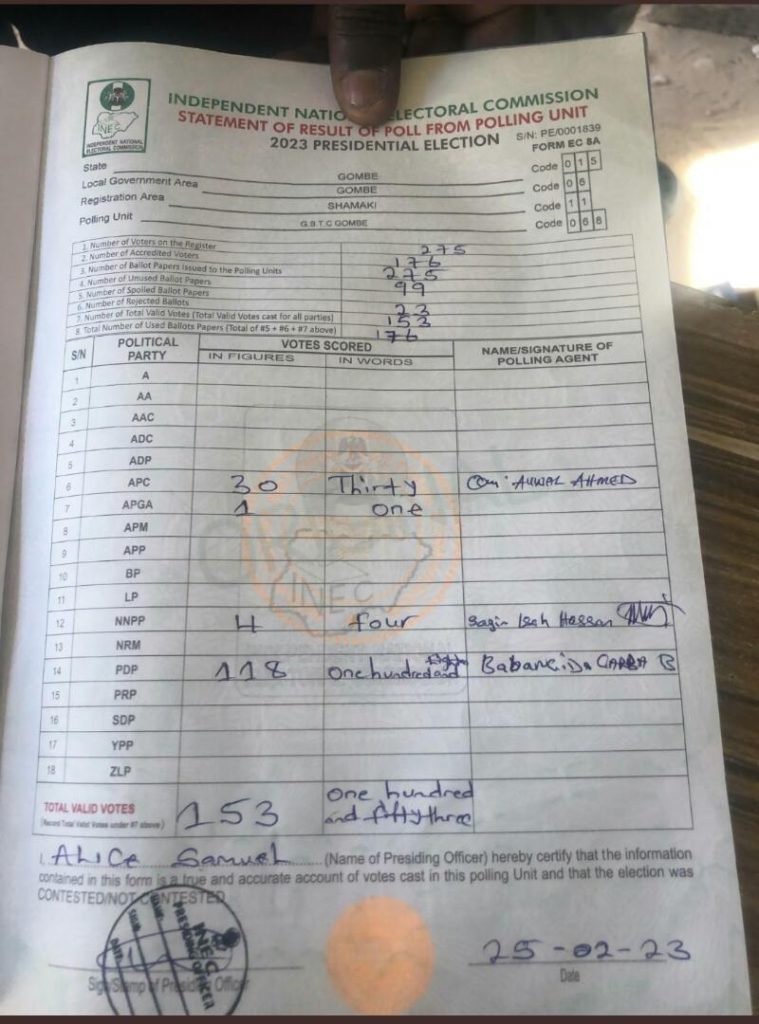 INDEPENDENT NATIO ELECTORAL COMMISSION
STATEMENT OF RESULT OF POLL FROM POLLING UNIT
2023 PRESIDENTIAL ELECTION
S/N: PE/0001839
FORM EC 8A
INEC
INDEPENDENT NATIONAL
ELECTORAL COMMISSION
State GOMBE Code 015
Local Government Area GOMBE Code 06
Registration Area SHAMAKI Code 11
Polling Unit G.B.T.C GOMBE Code 068
1. Number of Voters on the Register 275
2. Number of Accredited Voters 176
3. Number of Ballot Papers Issued to the Polling Units 275
4. Number of Unused Ballot Papers 99
5. Number of Spoiled Ballot Papers
6. Number of Rejected Ballots 23
7. Number of Total Valid Votes (Total Valid Votes cast for all parties) 153
8. Total Number of Used Ballots Papers (Total of #5 + #6 + #7 above) 176
S/N POLITICAL PARTY VOTES SCORED NAME/SIGNATURE OF POLLING AGENT
IN FIGURES IN WORDS
1 A
2 AA
3 AAC
4 ADC
5 ADP
6 APC 30 Thirty Com. AUWAL AHMED
7 APGA 1 one
8 APM
9 APP
10 BP
11 LP
12 NNPP 4 four Hassan
13 NRM
14 PDP 118 One hundred and GARBA B
15 PRP
16 SDP
17 YPP
18 ZLP
TOTAL VALID VOTES 153 one hundred
(Record Total Valid Votes under #7 above) and fifty three
I, ALICE Samuel (Name of Presiding Officer) hereby certify that the information
contained in this form is a true and accurate account of votes cast in this polling Unit and that the election was
CONTESTED/NOT CONTESTED
INEC
PRESIDING OFFICER
NAME
SIGN
DATE
25-02-23
Sign/Stamp of Presiding Officer Date